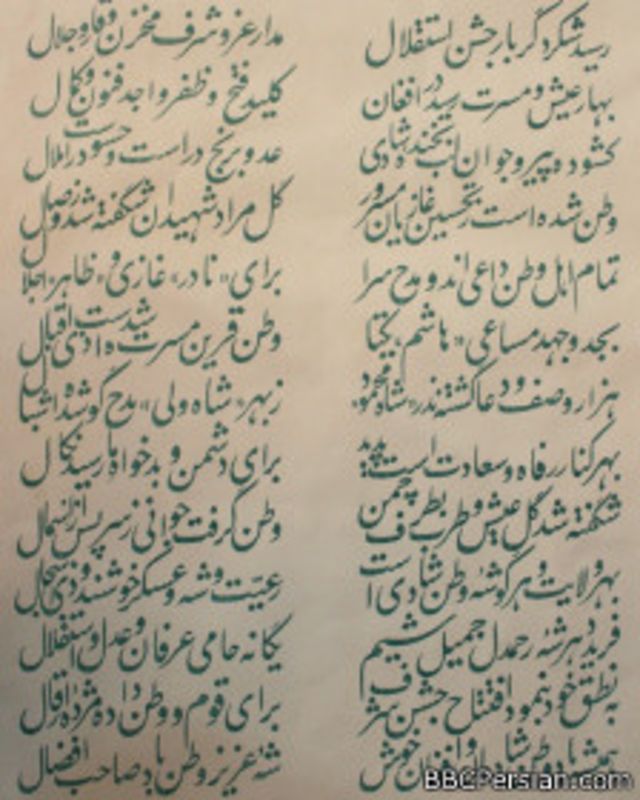 رسید شکر دگر بار جشن استقلال مدار عز و شرف مخزن وقار و جلال
بهار عیش و مسرت رسید در افغان کلید فتح و ظفر واجد فنون و کمال
کشوده پیر و جوان لب بخنده و شادی عدو برنج در است و حسود در املال
وطن شده است ز تحسین غازیان مسرور گل مراد شهیدان شگفته شد و زصل
تمام اهل وطن داعی اند و مدح سرا برای «نادر» غازی و «ظاهر» اجلال
بجد و جهد مساعی «هاشم» یکتا وطن قرین مسرت شدست هادی اقبال
هزار وصف و دعا گشته نذر «شاه محمود» زبهر «شاه ولی» مدح گو شده اشبال
بهر کنار رفاه و سعادت است پدید برای دشمن و بدخواه ها رسید نکال
شگفته شد گل عیش و طرب بطرف چمن وطن گرفت جوانی ز سر پس از
بهر ولایت و هر گوشه وطن شادی است رعیت و شه و عسکر خوشند و ذی
فرید دهر شه رحمدل جمیل شیم یگانه حامی عرفان و عدل و استقلال
به نطق خود بنمود افتتاح جشن شرف برای قوم و وطن داده مژده
همیشه باد وطن شاد و افغان خوش شه عزیز وطن باد صاحب افضال
BBCPersian.com